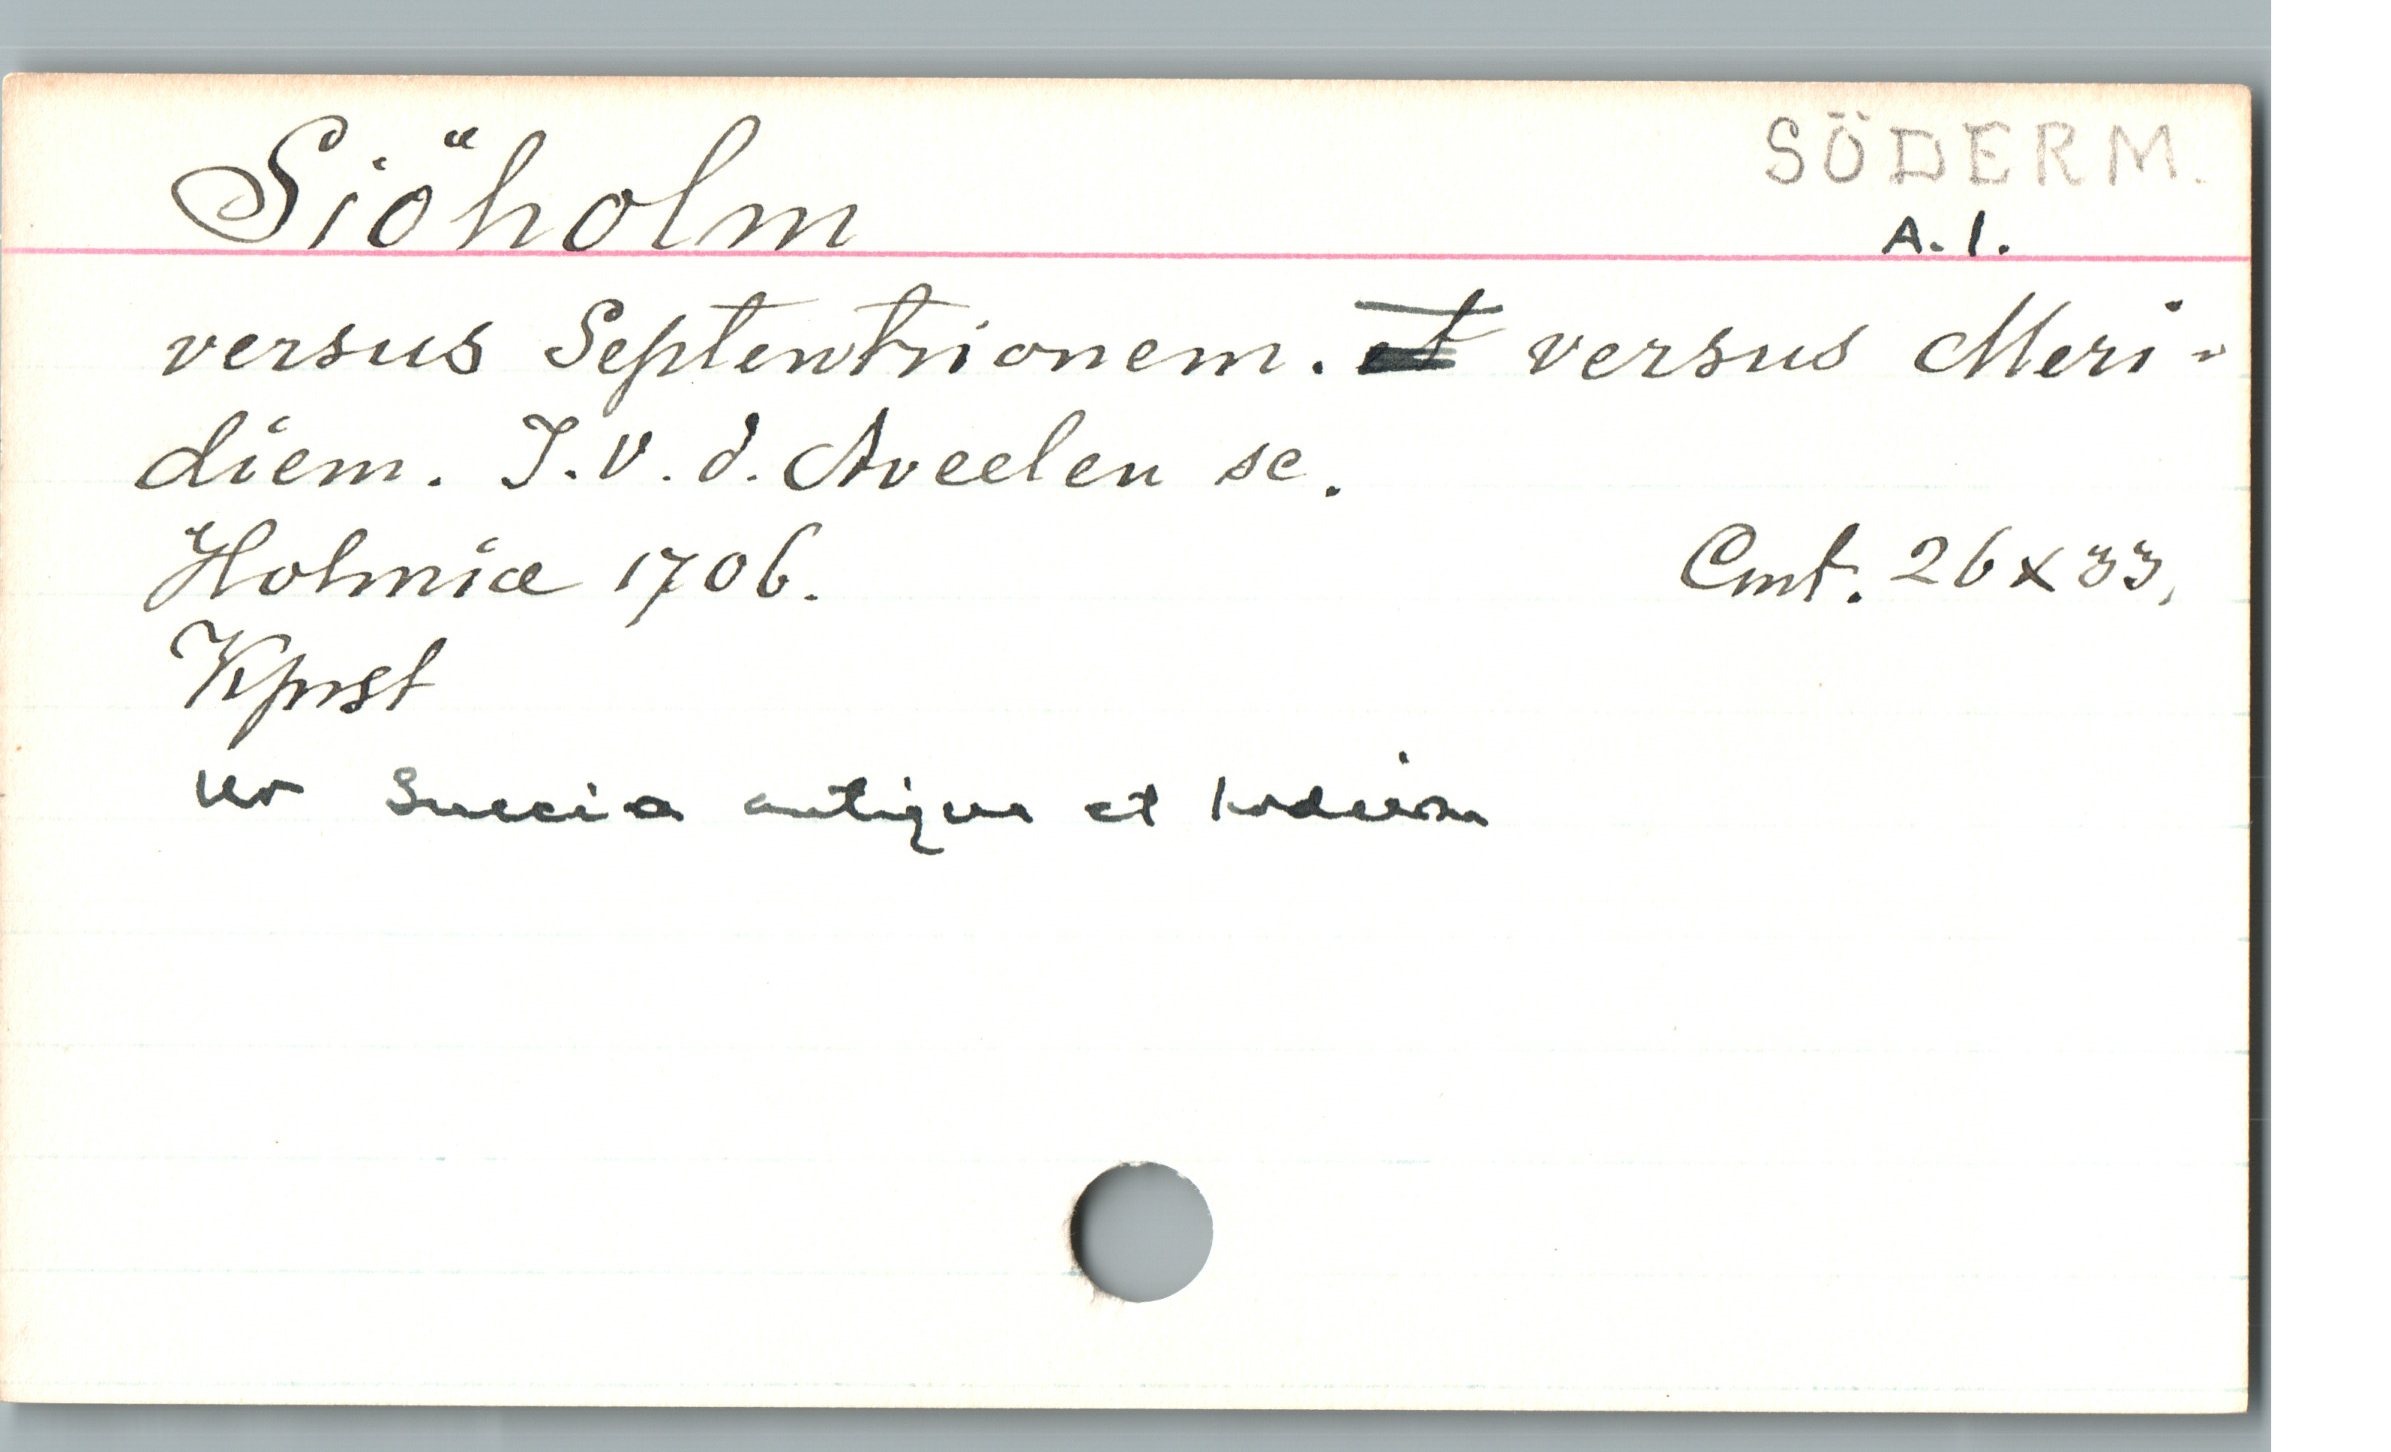 Siöholm
SÖDERM.
A. 1.
versus Septentrionem. et versus Meri-
diem. J. V. d. Aveelen sc.
Holmiæ 1706. Cmt. 26 x 33,
Kpnst
ur Suecia antiqua et hodierna